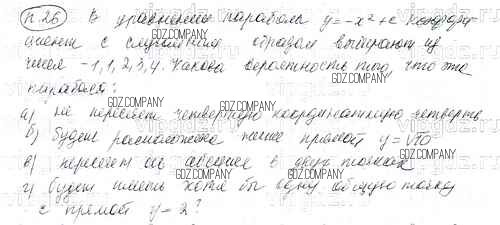 п.26) В уравнении параболы y=-x²+c коэффи-
циент c случайным образом выбирают из
чисел -1, 1, 2, 3, 4. Какова вероятность того, что эта
парабола:
а) не пересечет четвертую координатную четверть
б) будет расположена ниже прямой y=√10
в) пересечет ось абсцисс в двух точках
г) будет иметь хотя бы одну общую точку
с прямой y=2?
GDZ.COMPANY
GDZ.COMPANY
GDZ.COMPANY
GDZ.COMPANY
GDZ.COMPANY
GDZ.COMPANY
GDZ.COMPANY
GDZ.COMPANY
GDZ.COMPANY